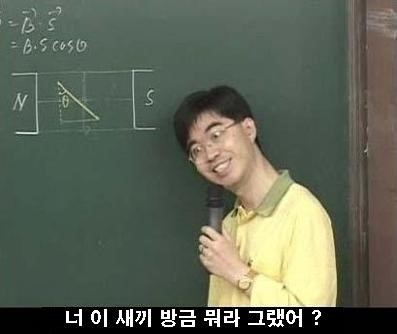 = B⃗ · S⃗
= B · S cosθ
N
θ
S
너 이 새끼 방금 뭐라 그랬어 ?